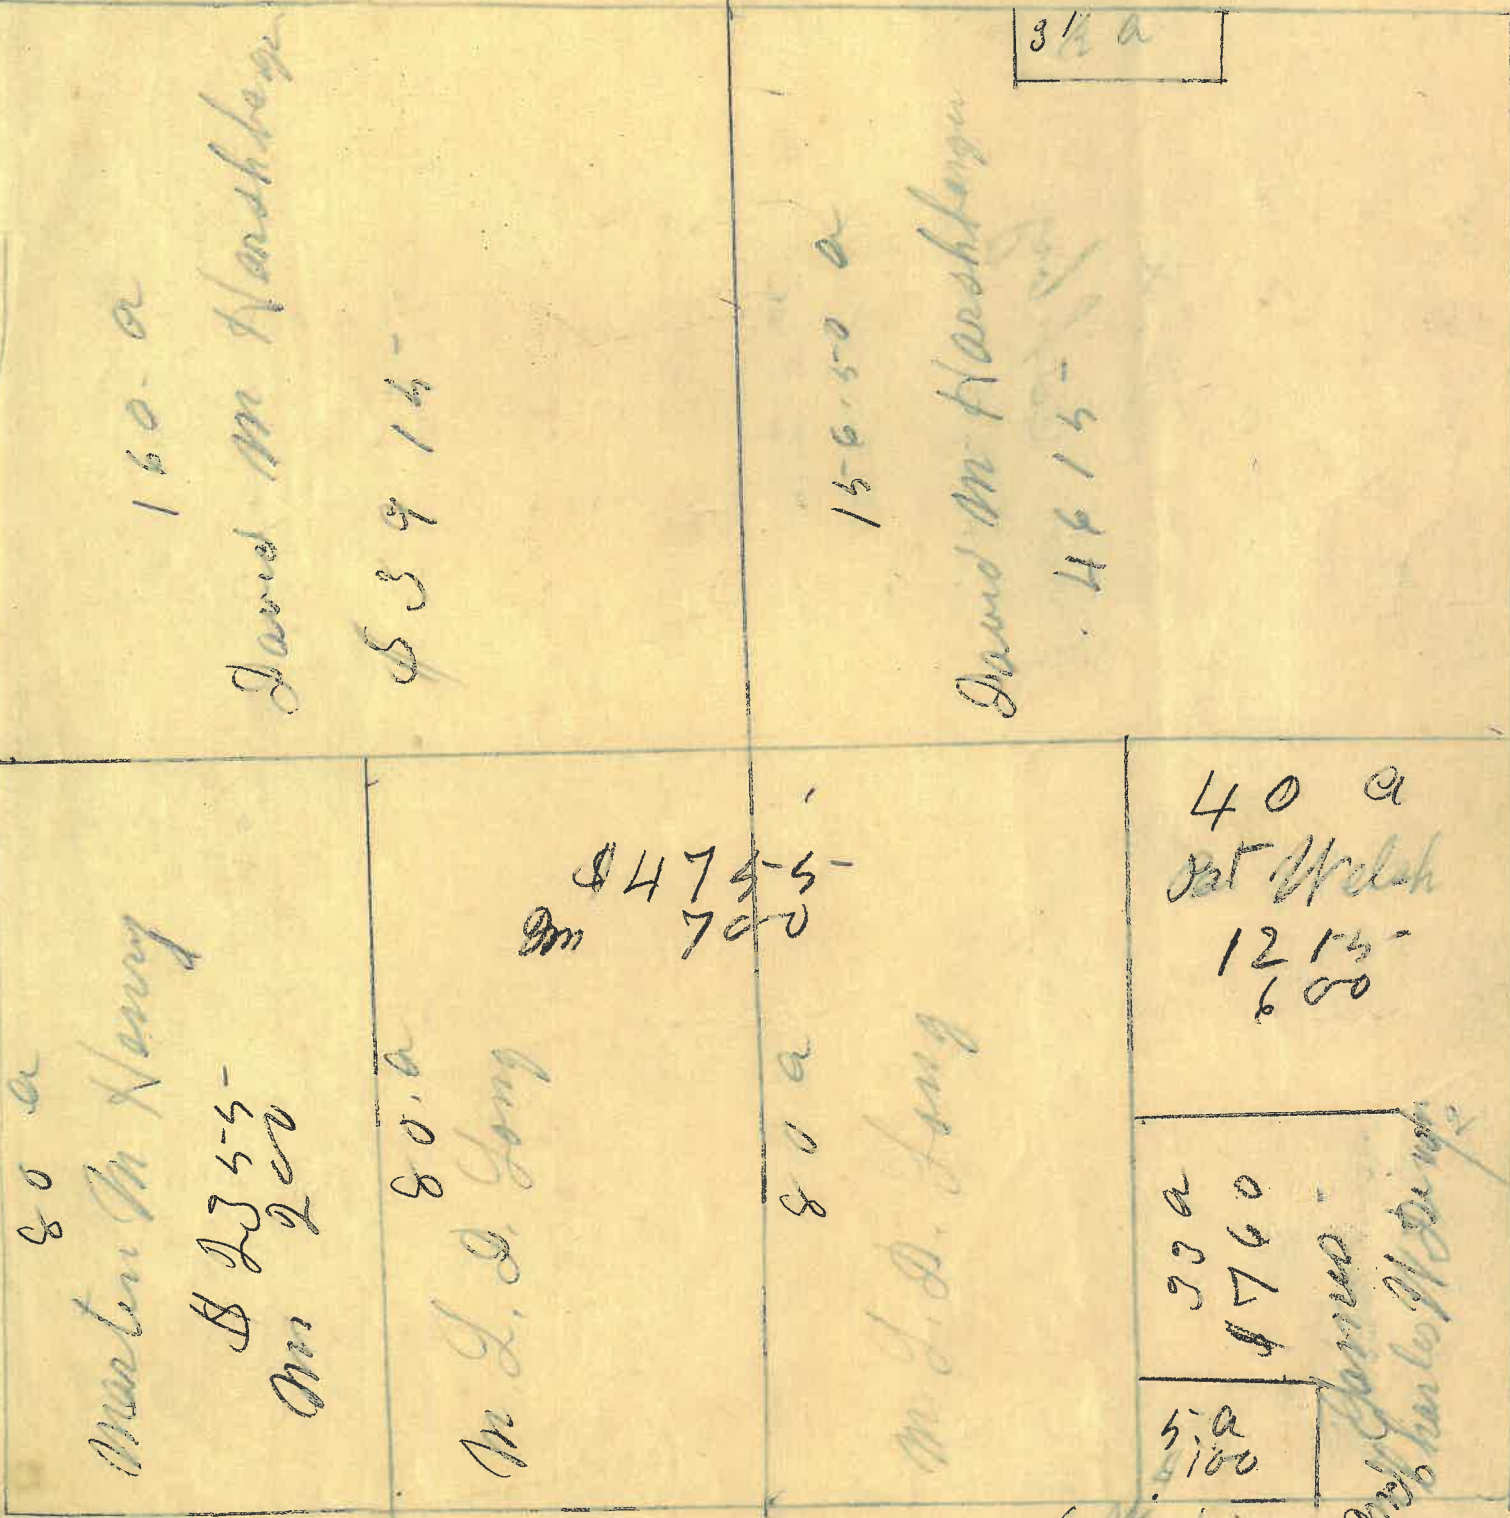 160. a
David M Harshbarger
$3915-
156.50 a
David M Harshbarger
4615-
80 a
Martin M Henry
$2355-
M 200
80. a
M L. D. Long
$4755-
700
80 a
M L. D. Long
40 a
Pat Welsh
1215-
600
33 a
$760
5 a
100
James
Charles W